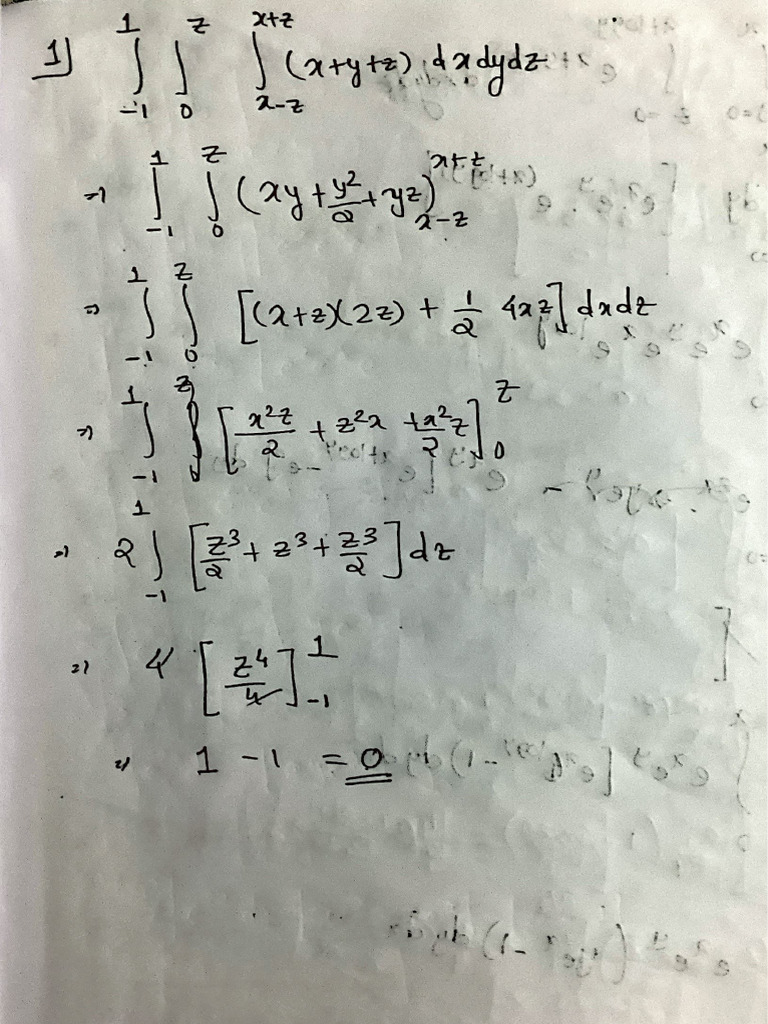 1) ∫_{-1}^{1} ∫_{0}^{z} ∫_{x-z}^{x+z} (x+y+z) dxdydz
⇒ ∫_{-1}^{1} ∫_{0}^{z} (xy + y²/2 + yz)_{x-z}^{x+z}
⇒ ∫_{-1}^{1} ∫_{0}^{z} [(x+z)(2z) + 1/2 4xz] dxdz
⇒ ∫_{-1}^{1} ∫_{0}^{z} [x²z/2 + z²x + x²z/2]_{0}^{z}
⇒ 2 ∫_{-1}^{1} [z³/2 + z³ + z³/2] dz
⇒ 4 [z⁴/4]_{-1}^{1}
⇒ 1 - 1 = 0